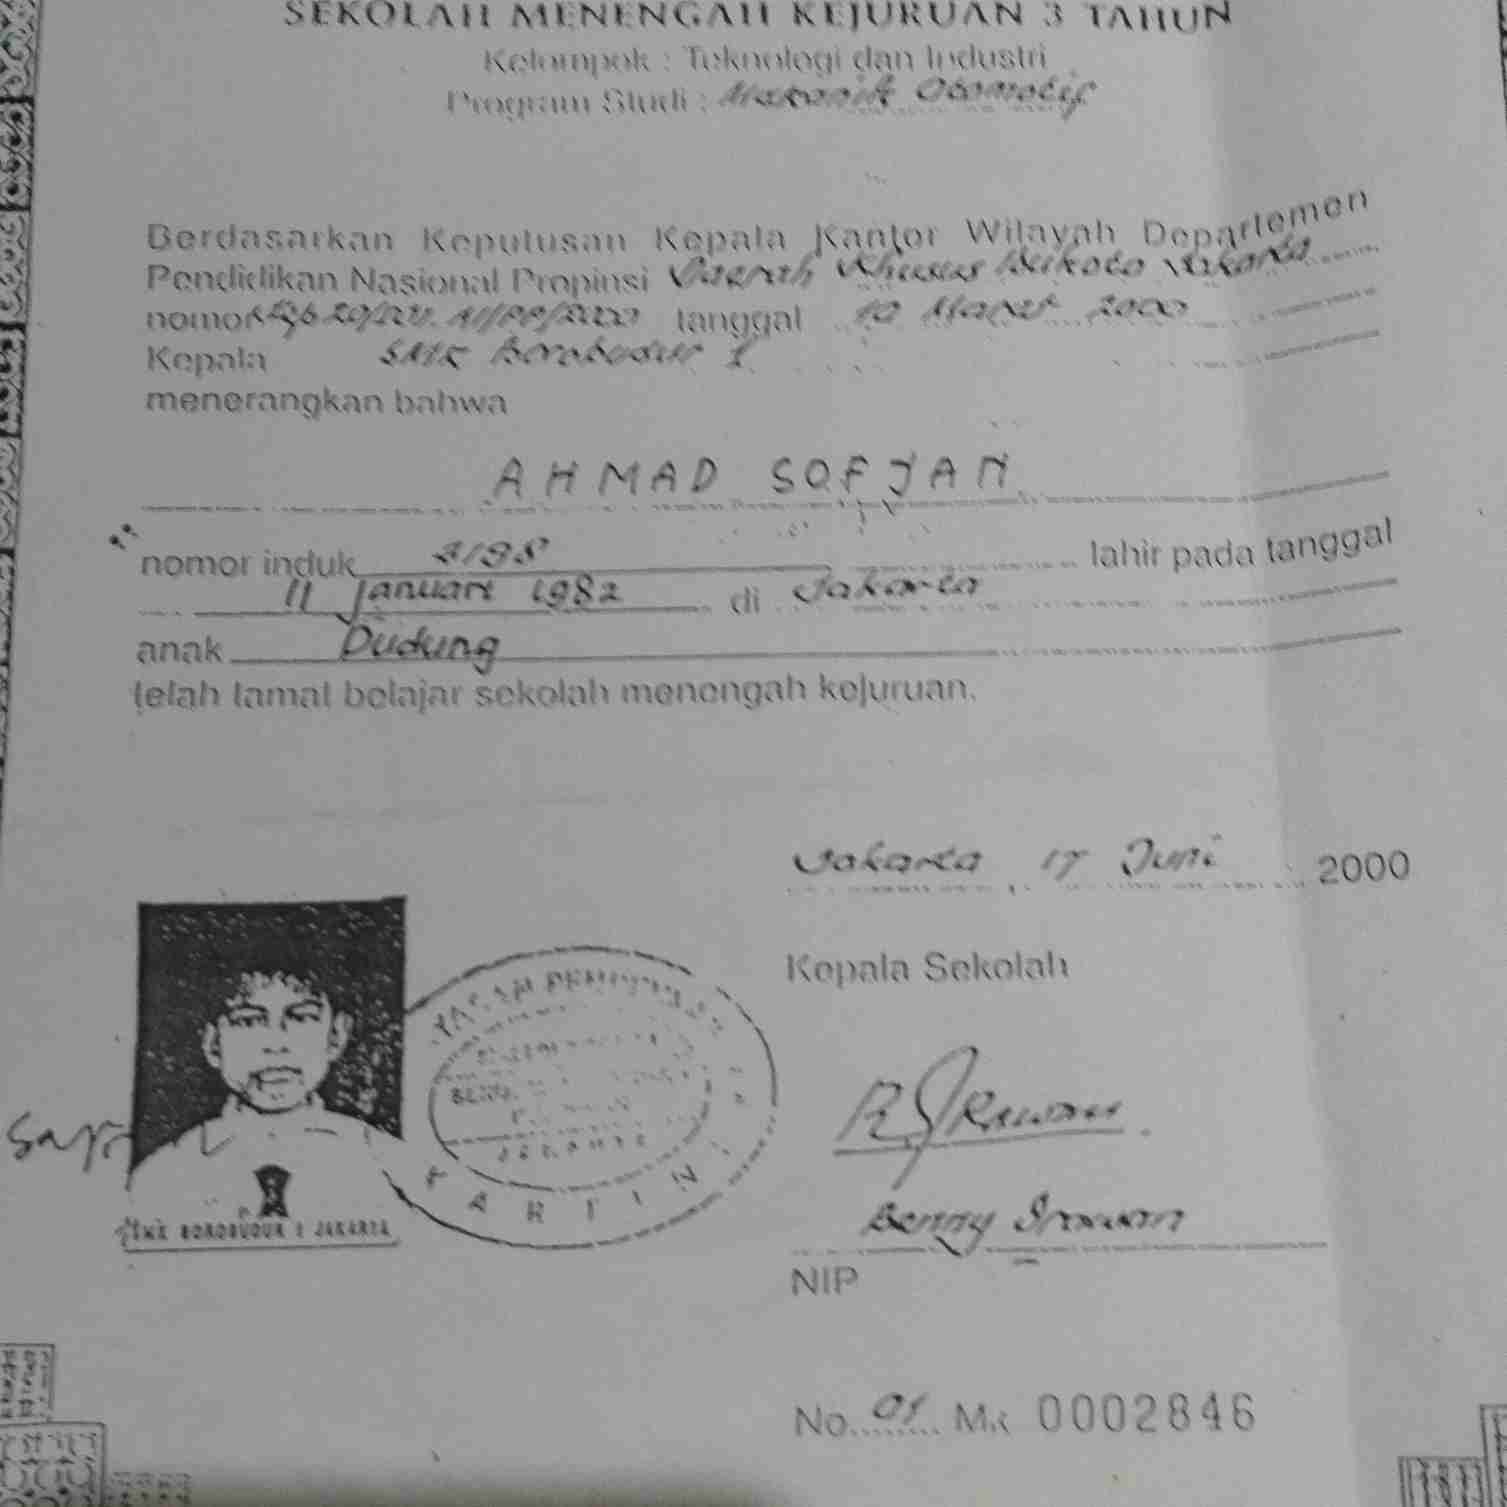 SEKOLAH MENENGAH KEJURUAN 3 TAHUN
Kelompok : Teknologi dan Industri
Program Studi : Mekanik Otomotif
Berdasarkan Keputusan Kepala Kantor Wilayah Departemen
Pendidikan Nasional Propinsi Daerah Khusus Ibukota Jakarta
nomor tanggal 10 Maret 2000
Kepala SMK Borobudur 1
menerangkan bahwa
AHMAD SOFJAN
nomor induk 3198 lahir pada tanggal
11 Januari 1982 di Jakarta
anak Dudung
telah tamat belajar sekolah menengah kejuruan.
Jakarta, 17 Juni 2000
Kepala Sekolah
Benny Irawan
NIP
SMK BOROBUDUR 1 JAKARTA
KARTINI
JAKARTA
No. 01 Mk 0002846